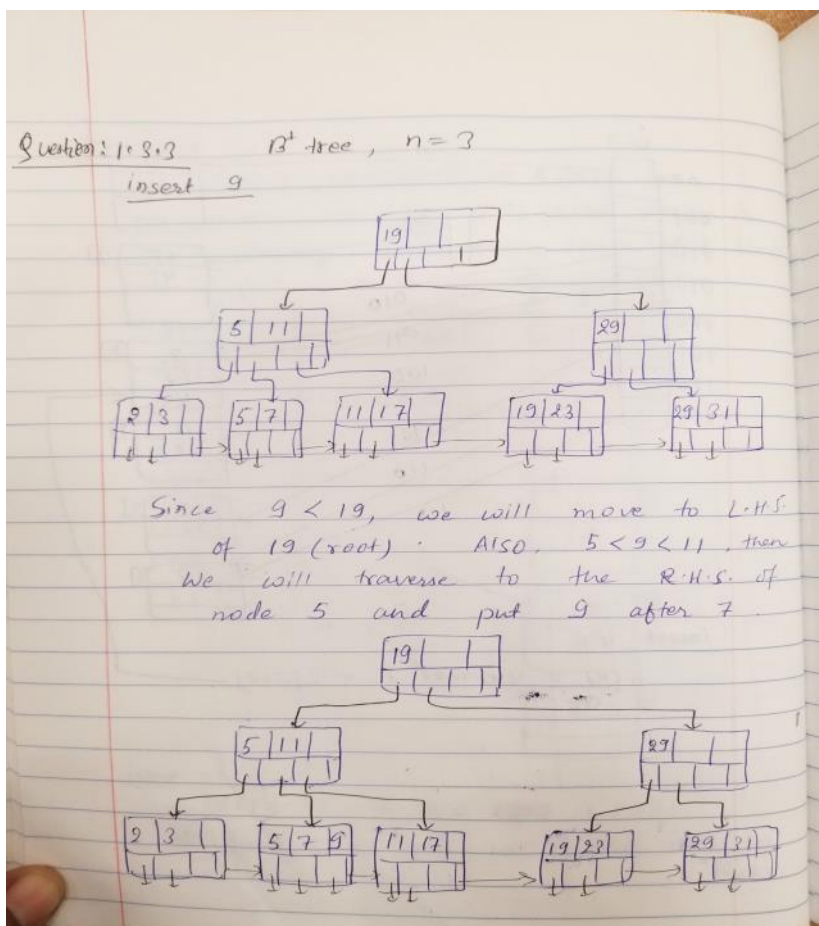 Question: 1.3.3 B+ tree, n = 3
insert 9
19
5 11 29
2 3 5 7 11 17 19 23 29 31
Since 9 < 19, we will move to L.H.S.
of 19 (root). Also, 5 < 9 < 11, then
We will traverse to the R.H.S. of
node 5 and put 9 after 7.
19
5 11 29
2 3 5 7 9 11 17 19 23 29 31